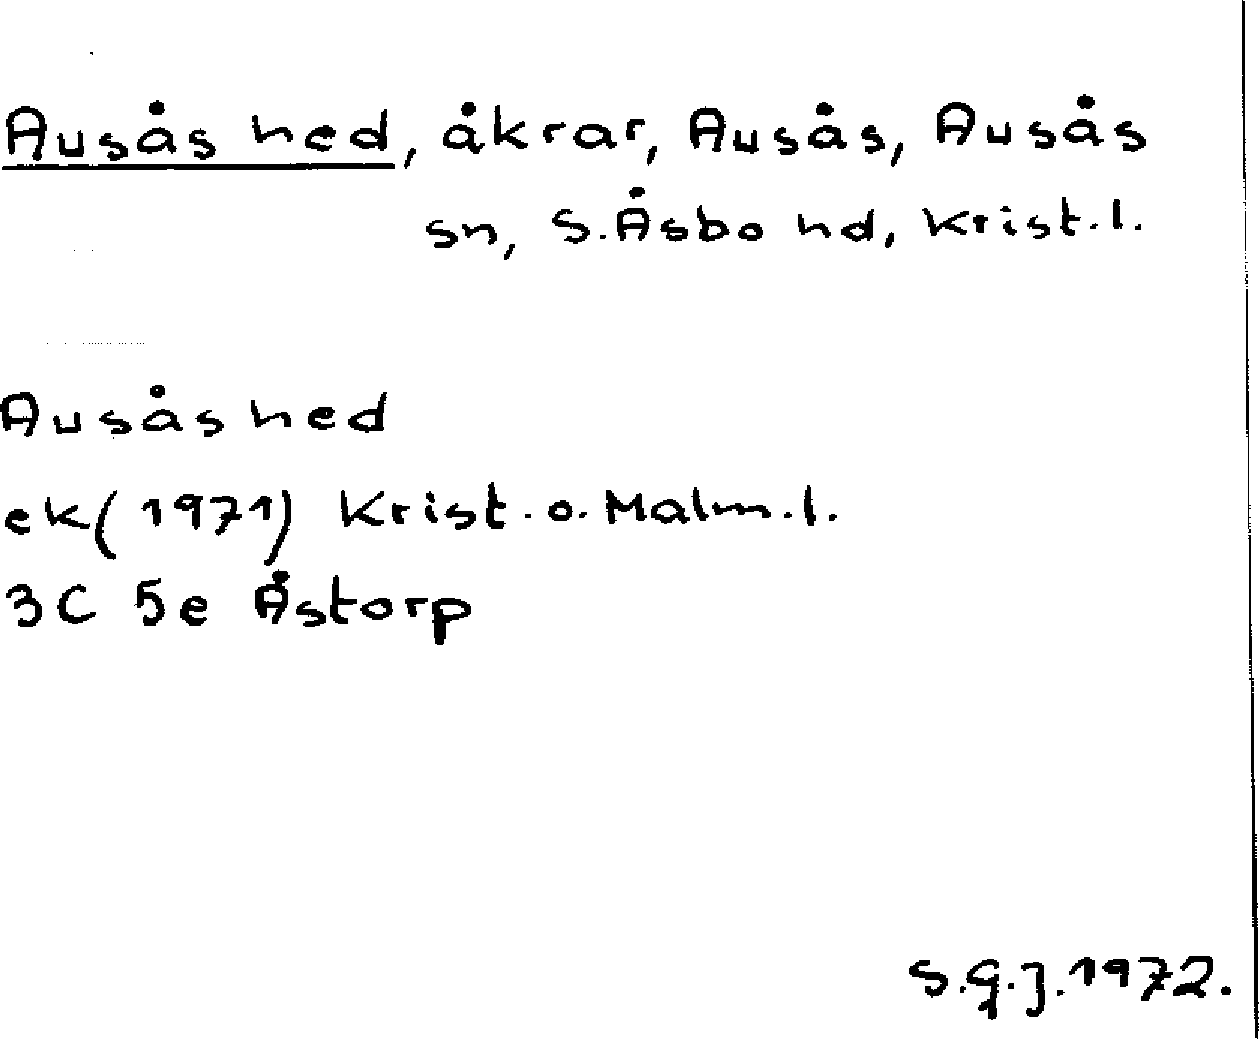 Ausås hed, åkrar, Ausås, Ausås
sn, S.Åsbo hd, Krist.l.
Ausås hed
ek(1971) Krist. o. Malm.l.
3C 5e Åstorp
S.G.J.1972.